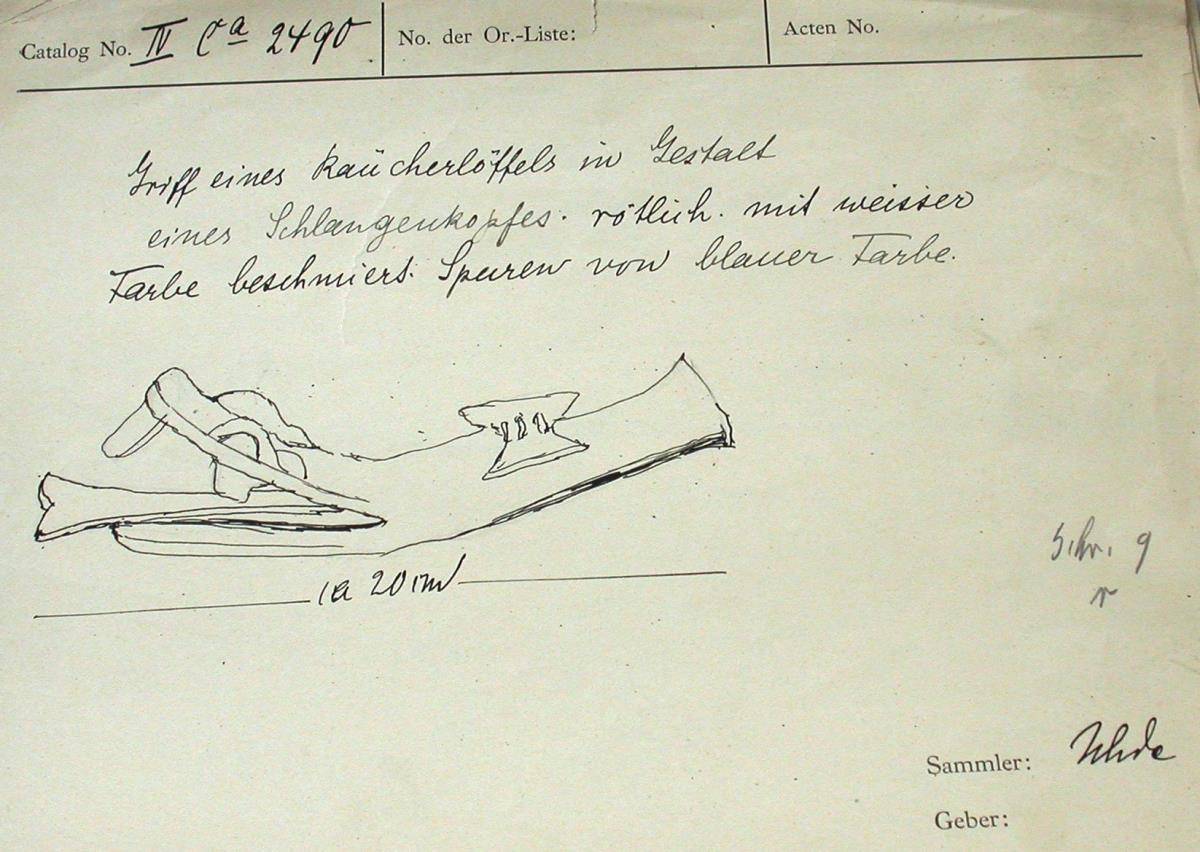 Catalog No. IV Ca 2490 No. der Or.-Liste: Acten No.
Griff eines Räucherlöffels in Gestalt
eines Schlangenkopfes. rötlich. mit weisser
Farbe beschmiert. Spuren von blauer Farbe.
ca 20 cm
Schr. 9
r
Sammler: Uhde
Geber: